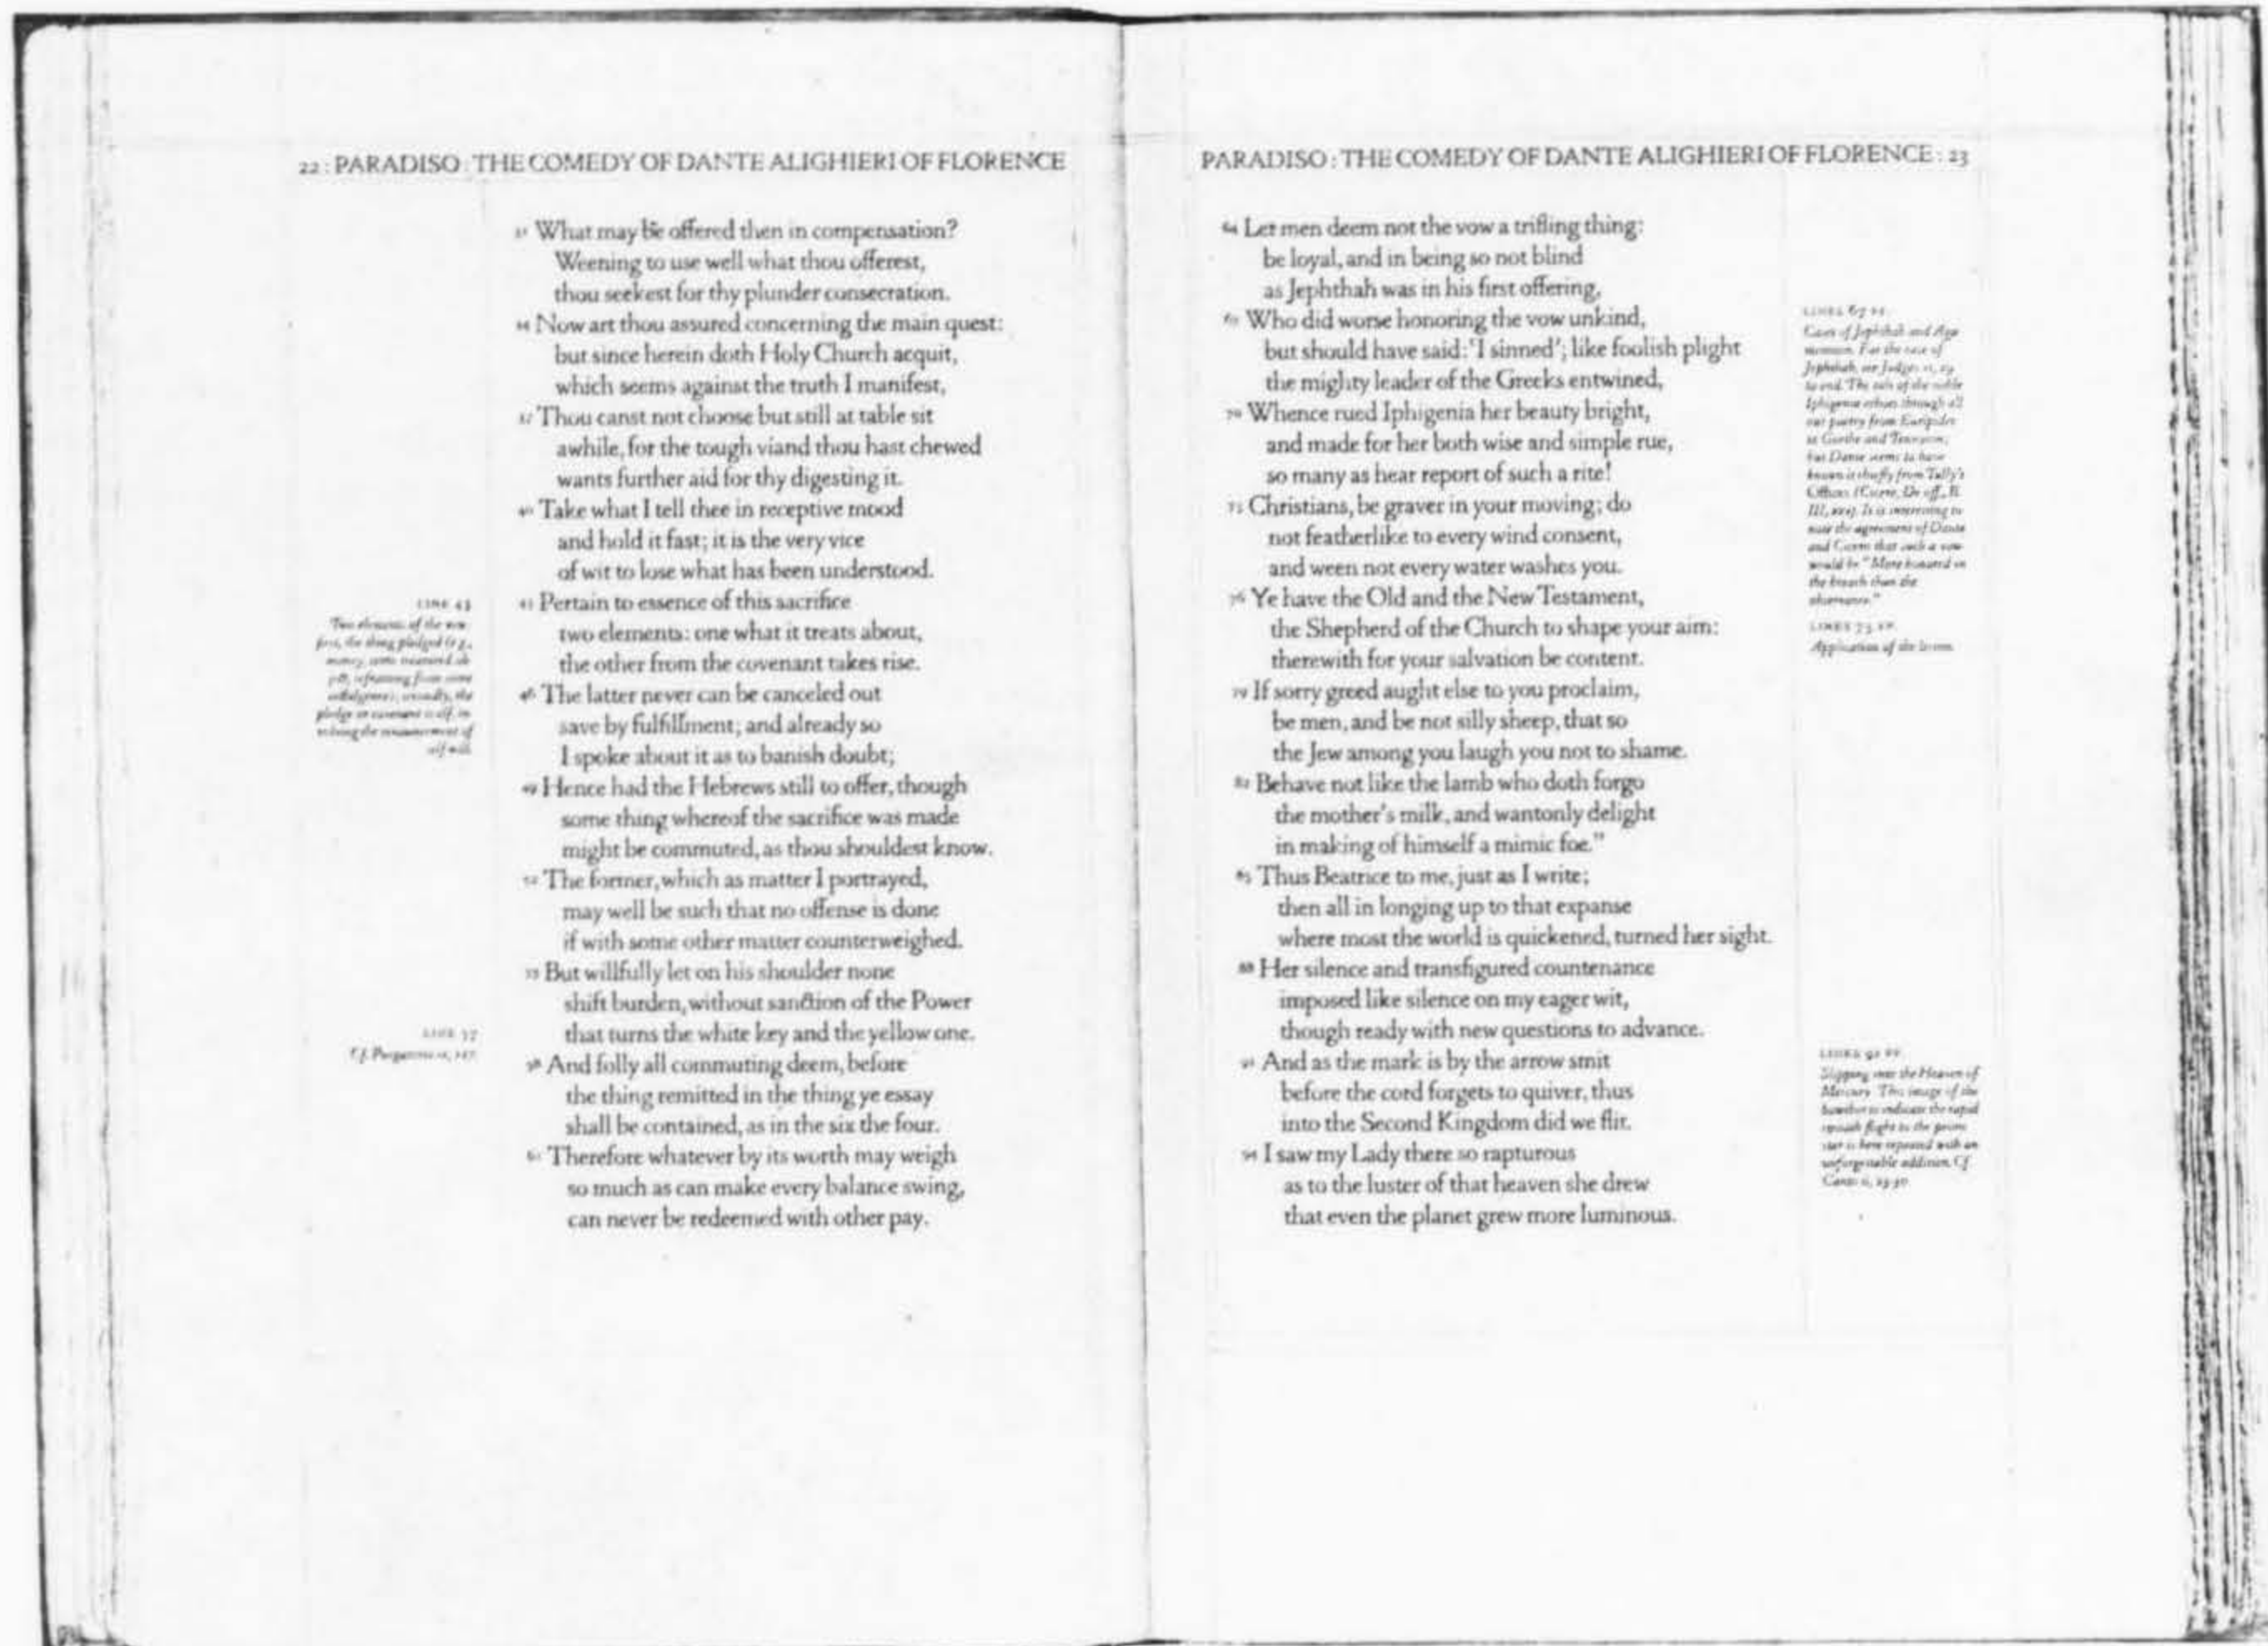 22 : PARADISO : THE COMEDY OF DANTE ALIGHIERI OF FLORENCE
31 What may be offered then in compensation?
Weening to use well what thou offerest,
thou seekest for thy plunder consecration.
34 Now art thou assured concerning the main quest:
but since herein doth Holy Church acquit,
which seems against the truth I manifest,
37 Thou canst not choose but still at table sit
awhile, for the tough viand thou hast chewed
wants further aid for thy digesting it.
40 Take what I tell thee in receptive mood
and hold it fast; it is the very vice
of wit to lose what has been understood.
43 Pertain to essence of this sacrifice
two elements: one what it treats about,
the other from the covenant takes rise.
46 The latter never can be canceled out
save by fulfillment; and already so
I spoke about it as to banish doubt;
49 Hence had the Hebrews still to offer, though
some thing whereof the sacrifice was made
might be commuted, as thou shouldest know.
52 The former, which as matter I portrayed,
may well be such that no offense is done
if with some other matter counterweighed.
55 But willfully let on his shoulder none
shift burden, without sanction of the Power
that turns the white key and the yellow one.
58 And folly all commuting deem, before
the thing remitted in the thing ye essay
shall be contained, as in the six the four.
61 Therefore whatever by its worth may weigh
so much as can make every balance swing,
can never be redeemed with other pay.
LINE 43
Two elements of the vow
first, the thing pledged
pledge or covenant itself, in-
volving the renouncement of
self-will.
LINE 57
Cf. Purgatorio
PARADISO : THE COMEDY OF DANTE ALIGHIERI OF FLORENCE : 23
64 Let men deem not the vow a trifling thing:
be loyal, and in being so not blind
as Jephthah was in his first offering,
67 Who did worse honoring the vow unkind,
but should have said: 'I sinned'; like foolish plight
the mighty leader of the Greeks entwined,
70 Whence rued Iphigenia her beauty bright,
and made for her both wise and simple rue,
so many as hear report of such a rite!
73 Christians, be graver in your moving; do
not featherlike to every wind consent,
and ween not every water washes you.
76 Ye have the Old and the New Testament,
the Shepherd of the Church to shape your aim:
therewith for your salvation be content.
79 If sorry greed aught else to you proclaim,
be men, and be not silly sheep, that so
the Jew among you laugh you not to shame.
82 Behave not like the lamb who doth forgo
the mother's milk, and wantonly delight
in making of himself a mimic foe."
85 Thus Beatrice to me, just as I write;
then all in longing up to that expanse
where most the world is quickened, turned her sight.
88 Her silence and transfigured countenance
imposed like silence on my eager wit,
though ready with new questions to advance.
91 And as the mark is by the arrow smit
before the cord forgets to quiver, thus
into the Second Kingdom did we flit.
94 I saw my Lady there so rapturous
as to the luster of that heaven she drew
that even the planet grew more luminous.
LINES 67 FF.
Cases of Jephthah and Aga-
memnon. For the case of
Jephthah, see Judges
to end. The tale of the noble
Iphigenia echoes through all
our poetry from Euripides
to Goethe and Tennyson;
but Dante seems to have
known it chiefly from Tully's
Offices (Cicero, De off.,
III, xxv). It is interesting to
note the agreement of Dante
and Cicero that such a vow
would be "More honored in
the breach than the
observance."
LINES 73 FF.
Application of the lesson.
LINES 91 FF.
the Heaven of
Mercury. This image of the
to indicate the rapid
flight to the
star is here repeated with an
unforgettable addition. Cf.
Canto ii, 23-30